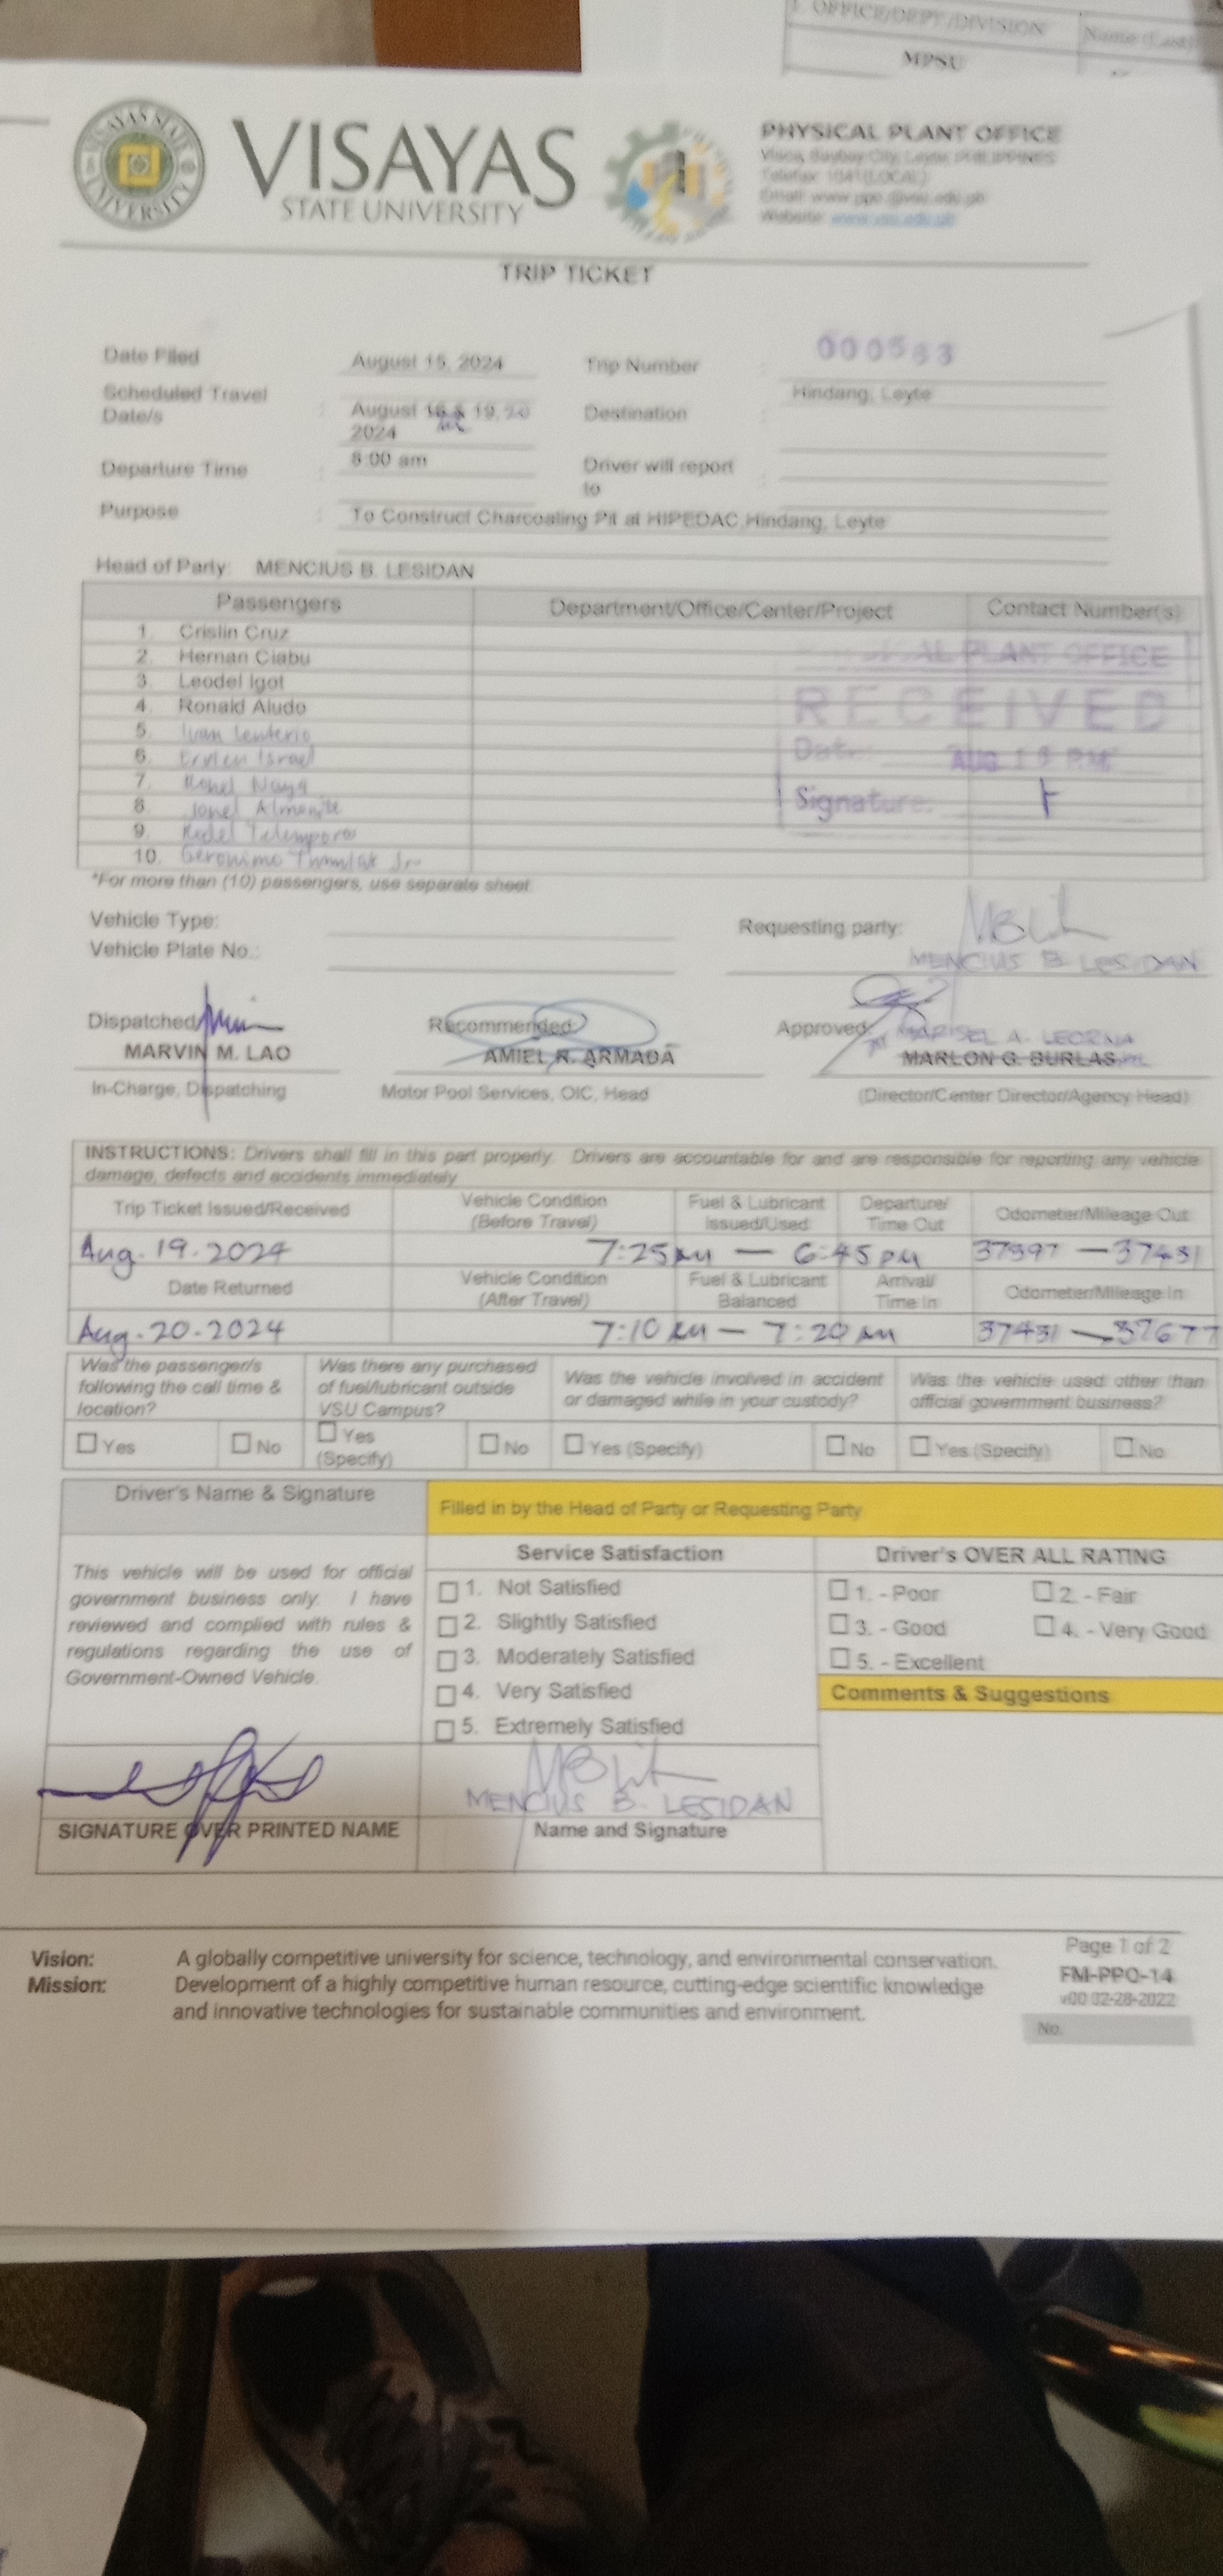 OFFICE/DEPT./DIVISION
Name (Last)
MPSU
VISAYAS STATE UNIVERSITY
VISAYAS
STATE UNIVERSITY
PHYSICAL PLANT OFFICE
Visca, Baybay City, Leyte, PHILIPPINES
Telefax: 1041 (LOCAL)
Email: www.ppo.@vsu.edu.ph
Website: www.vsu.edu.ph
TRIP TICKET
Date Filed August 15, 2024 Trip Number : 000583
Scheduled Travel Date/s : August 16 & 19, 20 2024 Destination Hindang, Leyte
Departure Time : 8:00 am Driver will report to :
Purpose : To Construct Charcoating Pit at HIPEDAC,Hindang, Leyte
Head of Party: MENCIUS B. LESIDAN
Passengers Department/Office/Center/Project Contact Number(s)
1. Crislin Cruz
2. Hernan Ciabu
3. Leodel Igot
4. Ronald Aludo
5. Ivan
6. Israel
7.
8. Jonel
9.
10. Geronimo Jr.
PLANT OFFICE
RECEIVED
Date: AUG
Signature:
*For more than (10) passengers, use separate sheet.
Vehicle Type:
Vehicle Plate No.:
Requesting party:
MENCIUS B. LESIDAN
Dispatched Recommended: Approved:
MARISEL A. LEORNA
MARVIN M. LAO AMIEL R. ARMADA MARLON G. BURLAS
In-Charge, Dispatching Motor Pool Services, OIC, Head (Director/Center Director/Agency Head)
INSTRUCTIONS: Drivers shall fill in this part properly. Drivers are accountable for and are responsible for reporting any vehicle
damage, defects and accidents immediately
Trip Ticket Issued/Received Vehicle Condition (Before Travel) Fuel & Lubricant Issued/Used Departure/ Time Out Odometer/Mileage Out
Aug. 19. 2024 7:25 AM — 6:45 PM 37397 — 37431
Date Returned Vehicle Condition (After Travel) Fuel & Lubricant Balanced Arrival/ Time In Odometer/Mileage In
Aug. 20. 2024 7:10 AM — 7:20 AM 37431 — 37677
Was the passenger/s following the call time & location? Was there any purchased of fuel/lubricant outside VSU Campus? Was the vehicle involved in accident or damaged while in your custody? Was the vehicle used other than official government business?
Yes No Yes (Specify) No Yes (Specify) No Yes (Specify) No
Driver's Name & Signature
Filled in by the Head of Party or Requesting Party
Service Satisfaction
Driver's OVER ALL RATING
This vehicle will be used for official
government business only. I have
reviewed and complied with rules &
regulations regarding the use of
Government-Owned Vehicle.
1. Not Satisfied
2. Slightly Satisfied
3. Moderately Satisfied
4. Very Satisfied
5. Extremely Satisfied
1. - Poor 2. - Fair
3. - Good 4. - Very Good
5. - Excellent
Comments & Suggestions
MENCIUS B. LESIDAN
SIGNATURE OVER PRINTED NAME
Name and Signature
Vision: A globally competitive university for science, technology, and environmental conservation.
Mission: Development of a highly competitive human resource, cutting-edge scientific knowledge
and innovative technologies for sustainable communities and environment.
Page 1 of 2
FM-PPO-14
v00 02-28-2022
No.